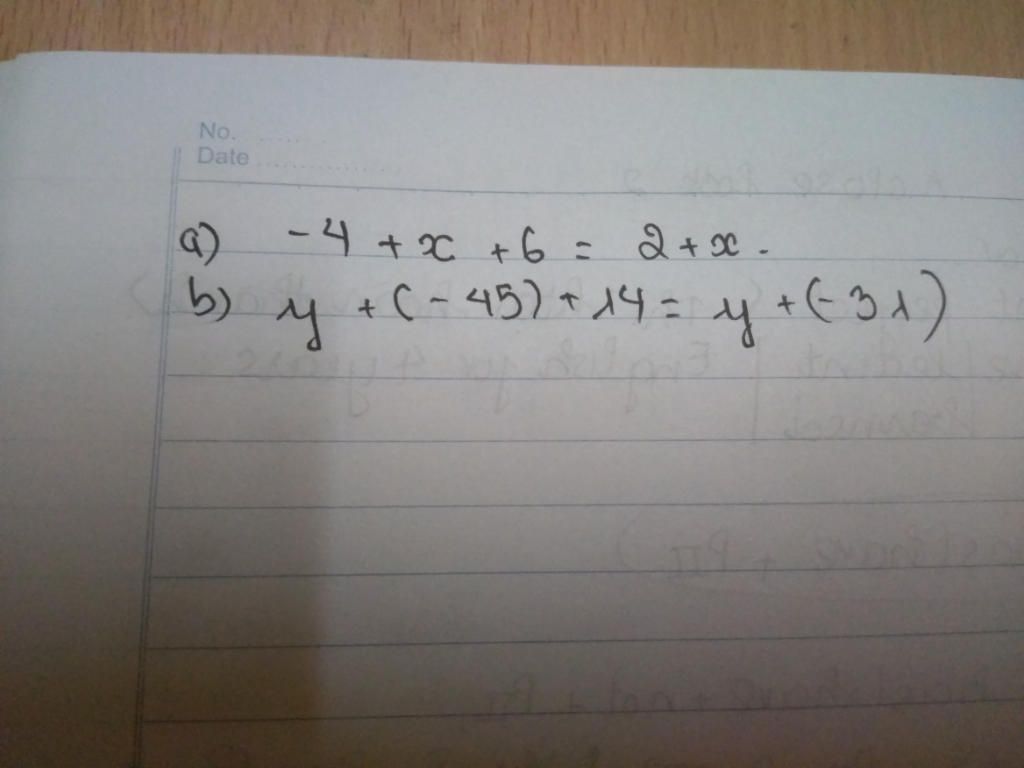 No. ......
Date ................
a) -4 + x + 6 = 2 + x.
b) y + (-45) + 14 = y + (-31)